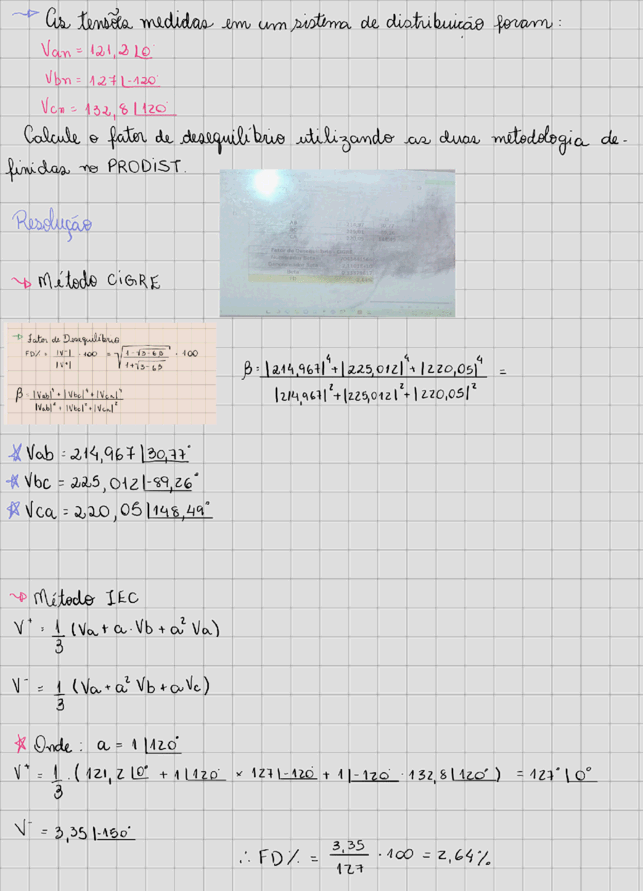 As tensões medidas em um sistema de distribuição foram:
Van = 121,2∠0
Vbn = 127∠-120
Vcn = 132,8∠120
Calcule o fator de desequilíbrio utilizando as duas metodologia de-
finidas no PRODIST.
Resolução
Método CIGRE
→ Fator de Desequilíbrio
FD% = |V-|/|V+| · 100 = √((1-√3-6β)/(1+√3-6β)) · 100
β = (|Vab|⁴+|Vbc|⁴+|Vca|⁴)/(|Vab|²+|Vbc|²+|Vca|²)
β = (|214,967|⁴+|225,012|⁴+|220,05|⁴)/(|214,967|²+|225,012|²+|220,05|²) =
Vab = 214,967∠30,77°
Vbc = 225,012∠-89,26°
Vca = 220,05∠148,49°
Método IEC
V⁺ = 1/3 (Va + a·Vb + a² Va)
V⁻ = 1/3 (Va + a² Vb + a Vc)
Onde: a = 1∠120°
V⁺ = 1/3 · (121,2∠0° + 1∠120° × 127∠-120° + 1∠-120° · 132,8∠120°) = 127°∠0°
V⁻ = 3,35∠-150°
∴ FD% = 3,35/127 · 100 = 2,64%